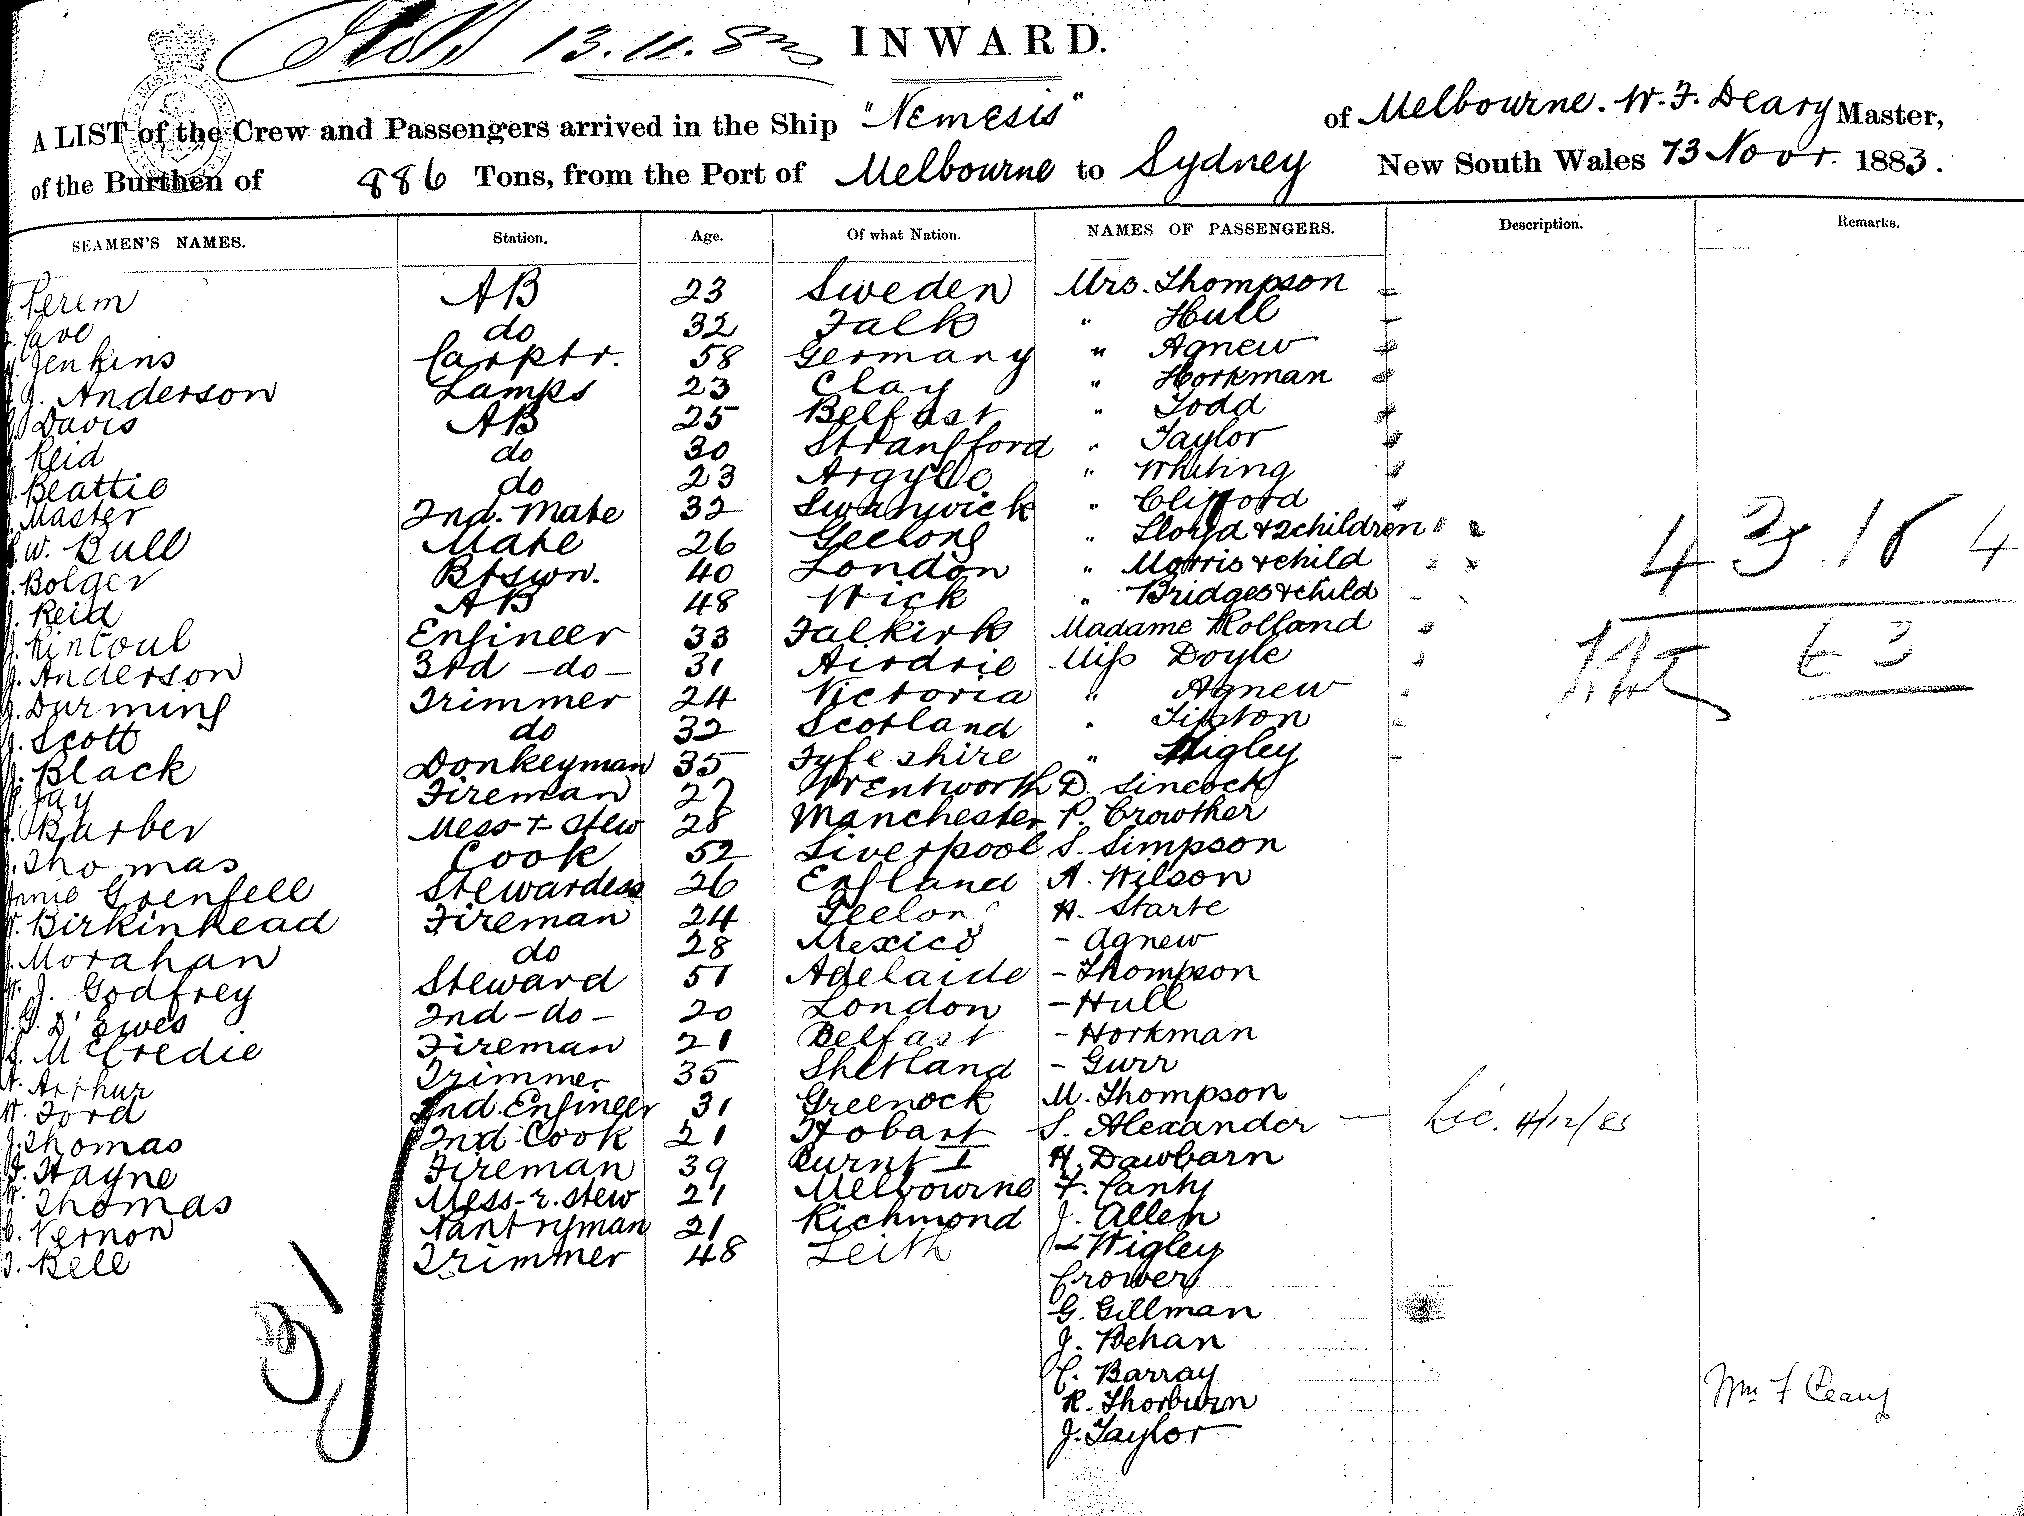 13.11.83 INWARD.
A LIST of the Crew and Passengers arrived in the Ship "Nemesis" of Melbourne. W. F. Deary Master,
of the Burthen of 886 Tons, from the Port of Melbourne to Sydney New South Wales 13 Novr. 1883.
SEAMEN'S NAMES. Station. Age. Of what Nation. NAMES OF PASSENGERS. Description. Remarks.
Perem AB 23 Sweden Mrs. Thompson
Cave do 32 Falk " Hull
Jenkins Carptr. 58 Germany " Agnew
J. Anderson Lamps 23 Clay " Horkman
Davis AB 25 Belfast " Todd
Reid do 30 Strangford " Taylor
Beattie do 23 Argyle " Whiting
Master 2nd. Mate 32 Swanwick " Clifford
W. Bull Mate 26 Geelong " Lloyd & 2 children
Bolger Btswn. 40 London " Morris & child
J. Reid AB 48 Wick " Bridges & child
J. Rintoul Engineer 33 Falkirk Madame Holland
J. Anderson 3rd - do - 31 Airdrie Miss Doyle
J. Durning Trimmer 24 Victoria " Agnew
J. Scott do 32 Scotland " Tipton
J. Black Donkeyman 35 Fyfeshire " Wigley
Jay Fireman 27 Wrentworth D. Sincock
Barber Mess r. Stew 28 Manchester P. Crowther
J. Thomas Cook 52 Liverpool S. Simpson
Annie Grenfell Stewardess 26 England A. Wilson
W. Birkinhead Fireman 24 Geelong H. Starte
J. Morahan do 28 Mexico - Agnew
W. J. Godfrey Steward 51 Adelaide - Thompson
J. G. D'Ewes 2nd - do - 20 London - Hull
S. McCredie Fireman 21 Belfast - Horkman
W. Arthur Trimmer 35 Shetland - Gurr
W. Ford 2nd. Engineer 31 Greenock M. Thompson
J. Thomas 2nd Cook 21 Hobart S. Alexander
F. Hayne Fireman 39 Burnt I H. Dawbarn
W. Thomas Mess-r. Stew 21 Melbourne F. Canty
C. Vernon Pantryman 21 Richmond J. Allen
T. Bell Trimmer 48 Leith - Wigley
Crower
G. Gillman
J. Behan
C. Barray
R. Thorburn
J. Taylor
43 . 18 4
63
31
Wm F Deary